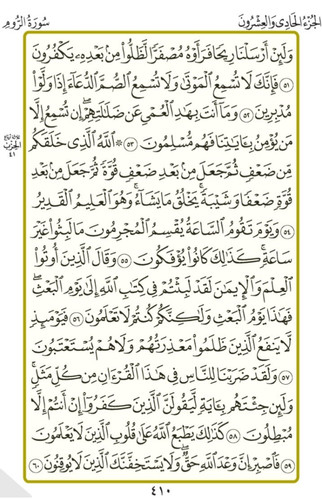 الجُزْءُ الحَادِي وَالعِشْرُونَ
سُورَةُ الرُّومِ
وَلَئِنْ أَرْسَلْنَا رِيحًا فَرَأَوْهُ مُصْفَرًّا لَّظَلُّوا۟ مِنۢ بَعْدِهِۦ يَكْفُرُونَ
٥١ فَإِنَّكَ لَا تُسْمِعُ ٱلْمَوْتَىٰ وَلَا تُسْمِعُ ٱلصُّمَّ ٱلدُّعَآءَ إِذَا وَلَّوْا۟
مُدْبِرِينَ ٥٢ وَمَآ أَنتَ بِهَٰدِ ٱلْعُمْىِ عَن ضَلَٰلَتِهِمْ ۖ إِن تُسْمِعُ إِلَّا
مَن يُؤْمِنُ بِـَٔايَٰتِنَا فَهُم مُّسْلِمُونَ ٥٣ ۞ ٱللَّهُ ٱلَّذِى خَلَقَكُم
الحزب
٤١
مِّن ضَعْفٍ ثُمَّ جَعَلَ مِنۢ بَعْدِ ضَعْفٍ قُوَّةً ثُمَّ جَعَلَ مِنۢ بَعْدِ
قُوَّةٍ ضَعْفًا وَشَيْبَةً ۚ يَخْلُقُ مَا يَشَآءُ ۖ وَهُوَ ٱلْعَلِيمُ ٱلْقَدِيرُ
٥٤ وَيَوْمَ تَقُومُ ٱلسَّاعَةُ يُقْسِمُ ٱلْمُجْرِمُونَ مَا لَبِثُوا۟ غَيْرَ
سَاعَةٍ ۚ كَذَٰلِكَ كَانُوا۟ يُؤْفَكُونَ ٥٥ وَقَالَ ٱلَّذِينَ أُوتُوا۟
ٱلْعِلْمَ وَٱلْإِيمَٰنَ لَقَدْ لَبِثْتُمْ فِى كِتَٰبِ ٱللَّهِ إِلَىٰ يَوْمِ ٱلْبَعْثِ ۖ
فَهَٰذَا يَوْمُ ٱلْبَعْثِ وَلَٰكِنَّكُمْ كُنتُمْ لَا تَعْلَمُونَ ٥٦ فَيَوْمَئِذٍ
لَّا يَنفَعُ ٱلَّذِينَ ظَلَمُوا۟ مَعْذِرَتُهُمْ وَلَا هُمْ يُسْتَعْتَبُونَ
٥٧ وَلَقَدْ ضَرَبْنَا لِلنَّاسِ فِى هَٰذَا ٱلْقُرْءَانِ مِن كُلِّ مَثَلٍ ۚ
وَلَئِن جِئْتَهُم بِـَٔايَةٍ لَّيَقُولَنَّ ٱلَّذِينَ كَفَرُوٓا۟ إِنْ أَنتُمْ إِلَّا
مُبْطِلُونَ ٥٨ كَذَٰلِكَ يَطْبَعُ ٱللَّهُ عَلَىٰ قُلُوبِ ٱلَّذِينَ لَا يَعْلَمُونَ
٥٩ فَٱصْبِرْ إِنَّ وَعْدَ ٱللَّهِ حَقٌّ ۖ وَلَا يَسْتَخِفَّنَّكَ ٱلَّذِينَ لَا يُوقِنُونَ ٦٠
٤١٠